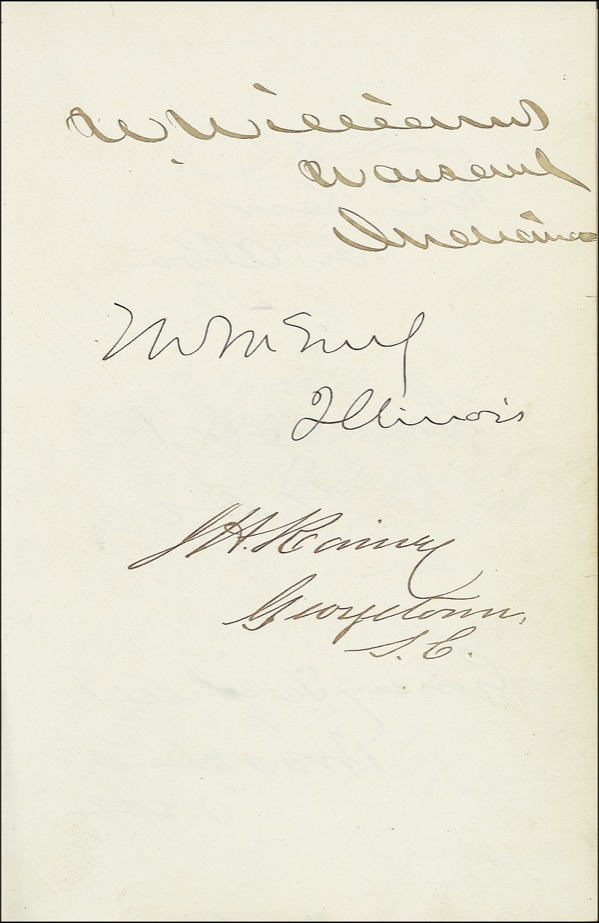 W. Williams
Warsaw
Indiana
Illinois
J. H. Rainey
Georgetown,
S. C.